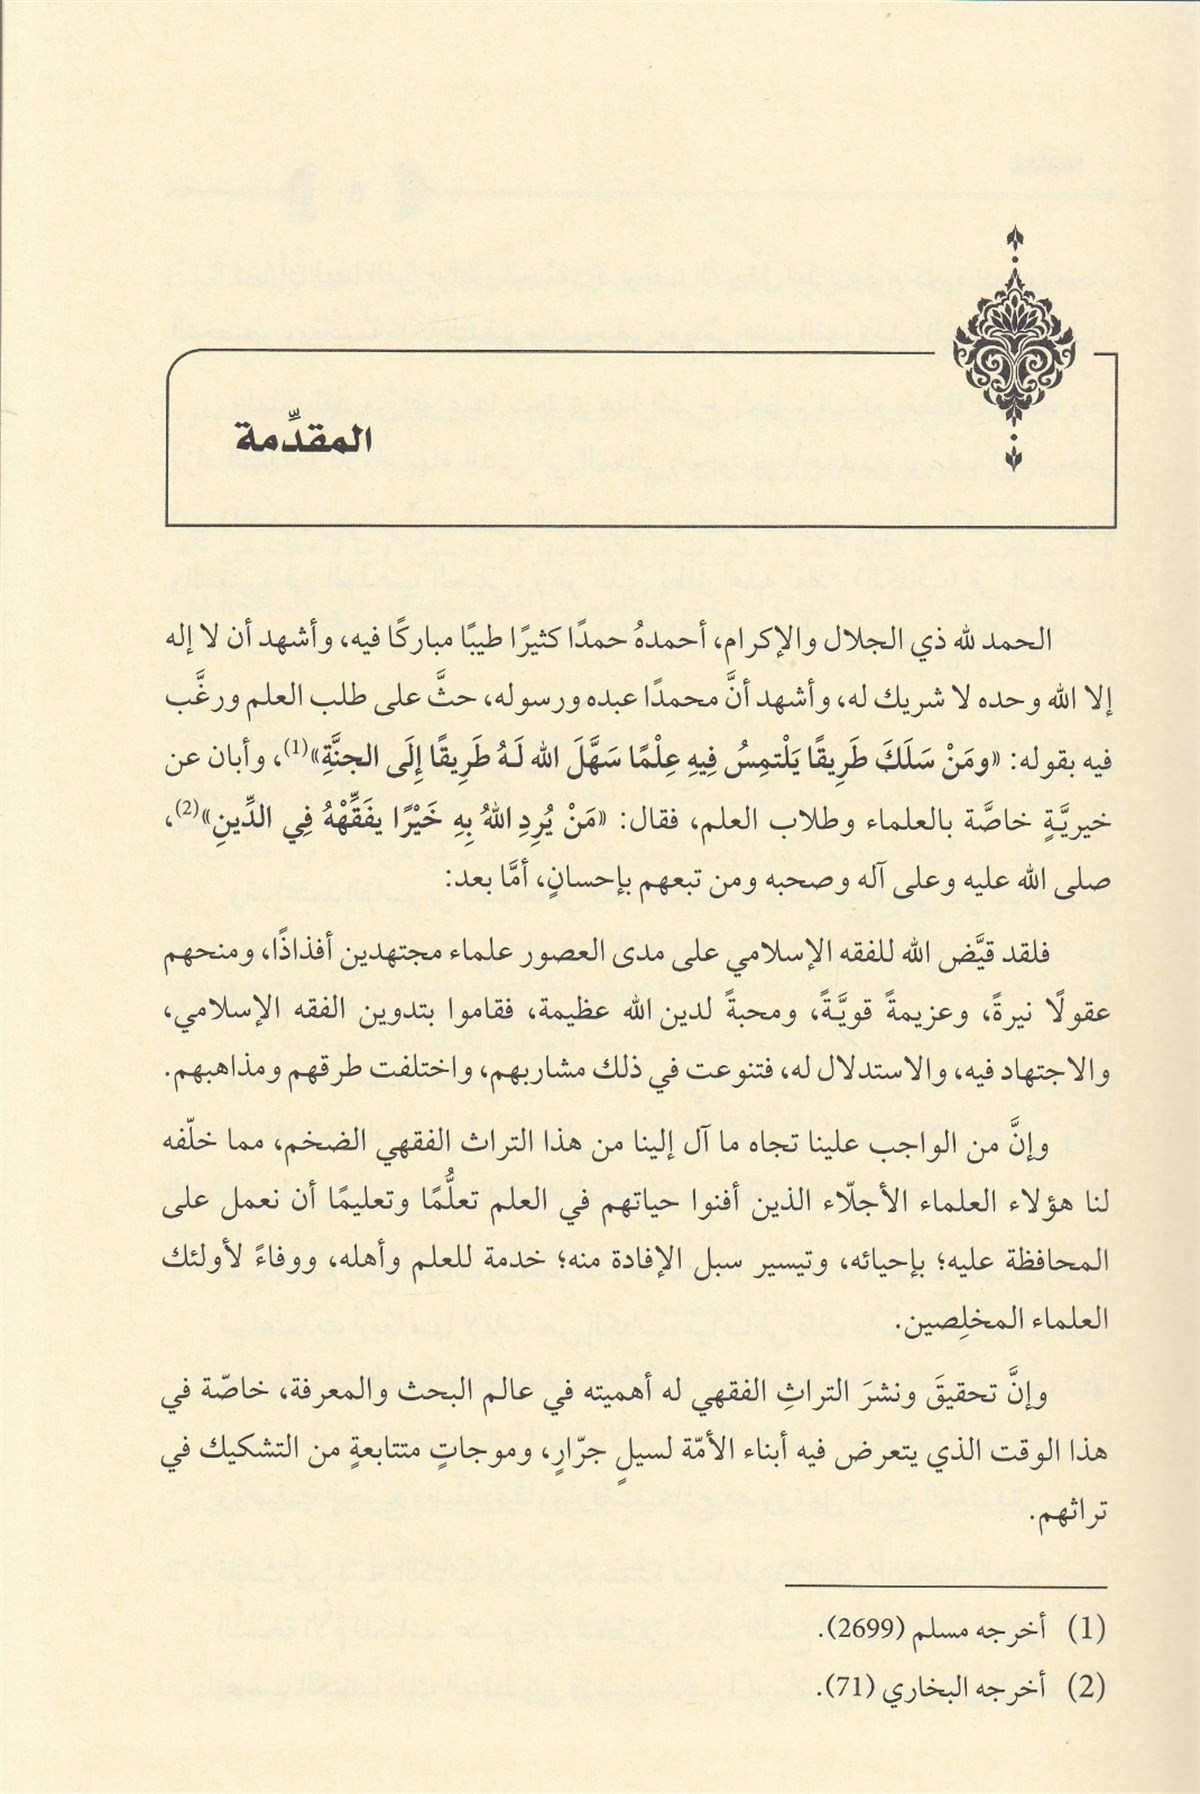 المقدِّمة
الحمد لله ذي الجلال والإكرام، أحمدهُ حمدًا كثيرًا طيبًا مباركًا فيه، وأشهد أن لا إله
إلا الله وحده لا شريك له، وأشهد أنَّ محمدًا عبده ورسوله، حثَّ على طلب العلم ورغَّب
فيه بقوله: «ومَنْ سَلَكَ طَرِيقًا يَلْتمِسُ فِيهِ عِلْمًا سَهَّلَ الله لَهُ طَرِيقًا إِلَى الجنَّةِ»(1)، وأبان عن
خيريَّةٍ خاصَّة بالعلماء وطلاب العلم، فقال: «مَنْ يُرِدِ اللهُ بِهِ خَيْرًا يفَقِّهْهُ فِي الدِّينِ»(2)،
صلى الله عليه وعلى آله وصحبه ومن تبعهم بإحسانٍ، أمَّا بعد:
فلقد قيَّض الله للفقه الإسلامي على مدى العصور علماء مجتهدين أفذاذًا، ومنحهم
عقولًا نيرةً، وعزيمةً قويَّةً، ومحبةً لدين الله عظيمة، فقاموا بتدوين الفقه الإسلامي،
والاجتهاد فيه، والاستدلال له، فتنوعت في ذلك مشاربهم، واختلفت طرقهم ومذاهبهم.
وإنَّ من الواجب علينا تجاه ما آل إلينا من هذا التراث الفقهي الضخم، مما خلّفه
لنا هؤلاء العلماء الأجلّاء الذين أفنوا حياتهم في العلم تعلُّمًا وتعليمًا أن نعمل على
المحافظة عليه؛ بإحيائه، وتيسير سبل الإفادة منه؛ خدمة للعلم وأهله، ووفاءً لأولئك
العلماء المخلِصين.
وإنَّ تحقيقَ ونشرَ التراثِ الفقهي له أهميته في عالم البحث والمعرفة، خاصّة في
هذا الوقت الذي يتعرض فيه أبناء الأمّة لسيلٍ جرّارٍ، وموجاتٍ متتابعةٍ من التشكيك في
تراثهم.
(1) أخرجه مسلم (2699).
(2) أخرجه البخاري (71).